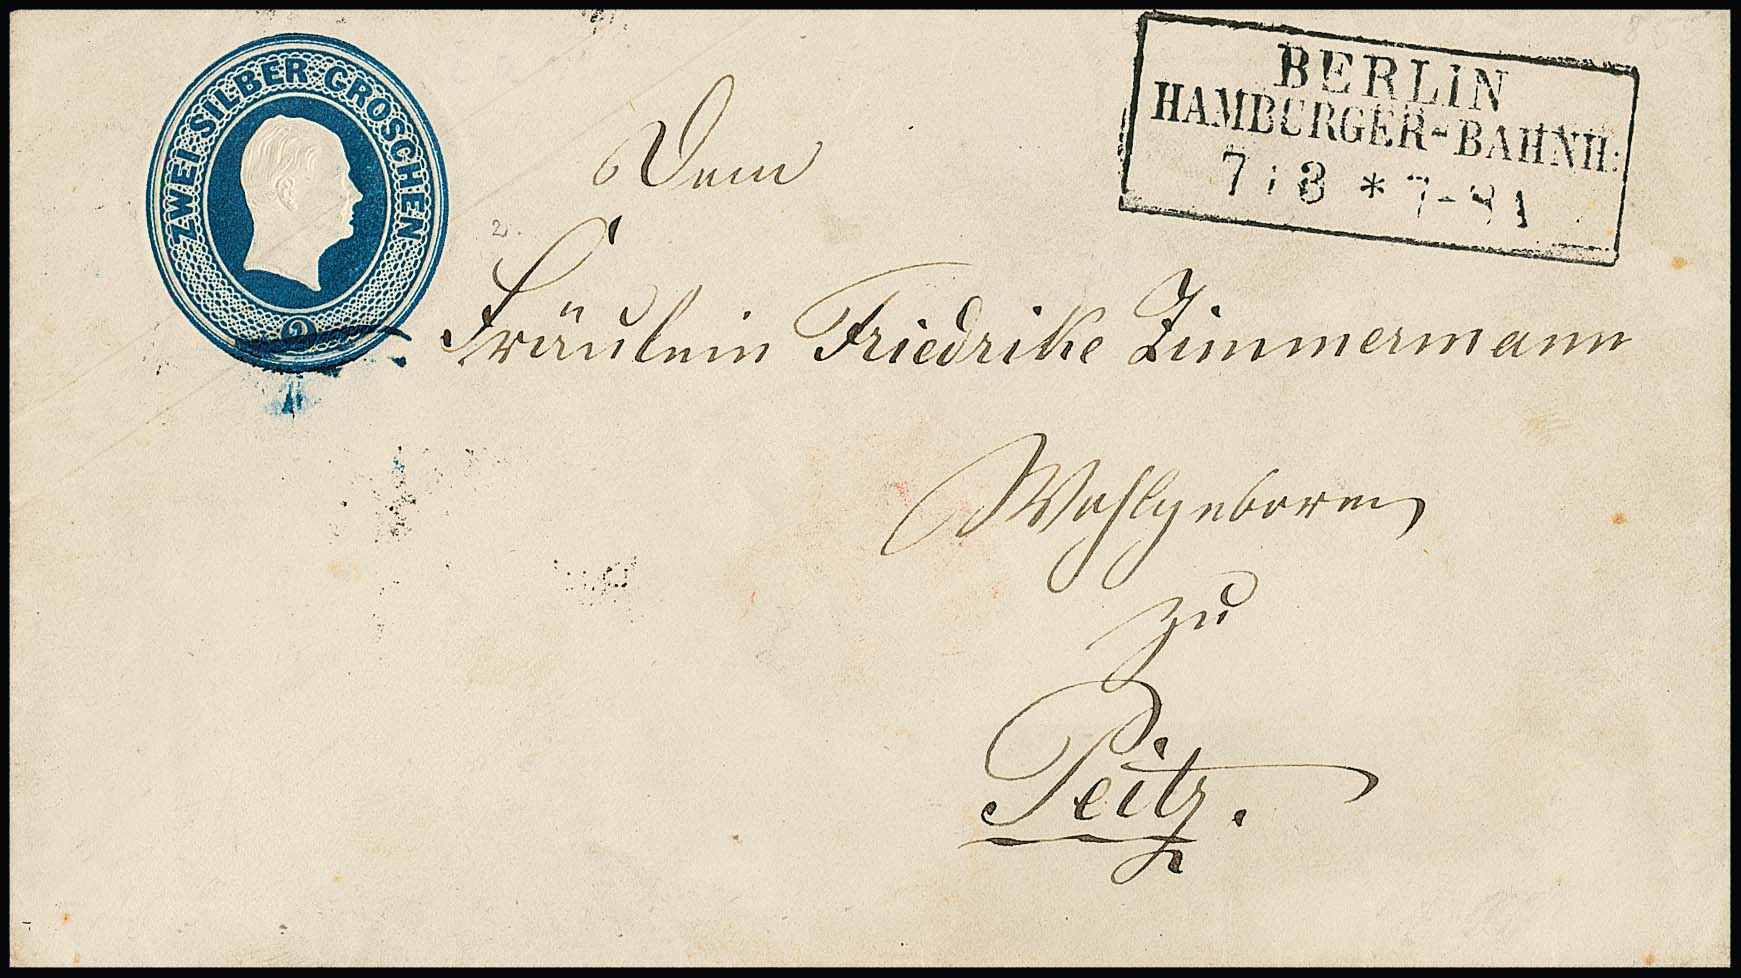 ZWEI·SILBER·GROSCHEN
2
BERLIN
HAMBURGER-BAHNH:
7 : 3 * 7-8 A
Dem
2.
Fräulein Friedrike Zimmermann
Wohlgeboren
zu
Peitz.